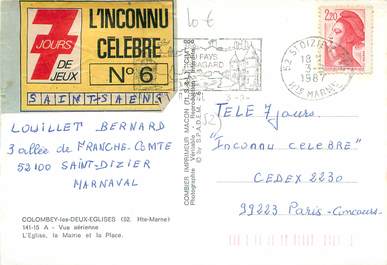 7
JOURS
DE
JEUX
L'INCONNU
CÉLÈBRE
N° 6
SAINT SAENS
10 €
LOUILLET BERNARD
3 allée de FRANCHE-COMTE
52100 SAINT-DIZIER
MARNAVAL
COLOMBEY-les-DEUX-EGLISES (52. Hte-Marne)
141-15 A - Vue aérienne
L'Eglise, la Mairie et la Place.
COMBIER IMPRIMEUR MACON
Photographie Véritable
© by S.P.A.D.E.M.
AU PAYS
52 ST DIZIER
18
3-
1987
HTE MARNE
2,20
52
TELE 7 jours
"Inconnu celebre"
CEDEX 2230
99223 Paris-Concours.